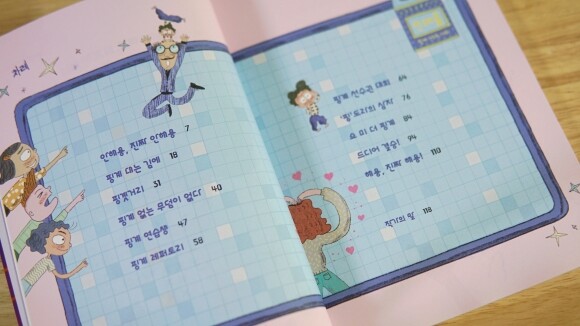 차례
안해용, 진짜 안해용 7
핑계 대는 김에 18
핑곗거리 31
핑계 없는 무덤이 없다 40
핑계 연습생 47
핑계 레퍼토리 58
핑계 선수권 대회 64
'핑'토리의 상자 76
요 미 더 핑계 84
드디어 결승! 94
해용, 진짜 해용! 110
작가의 말 118